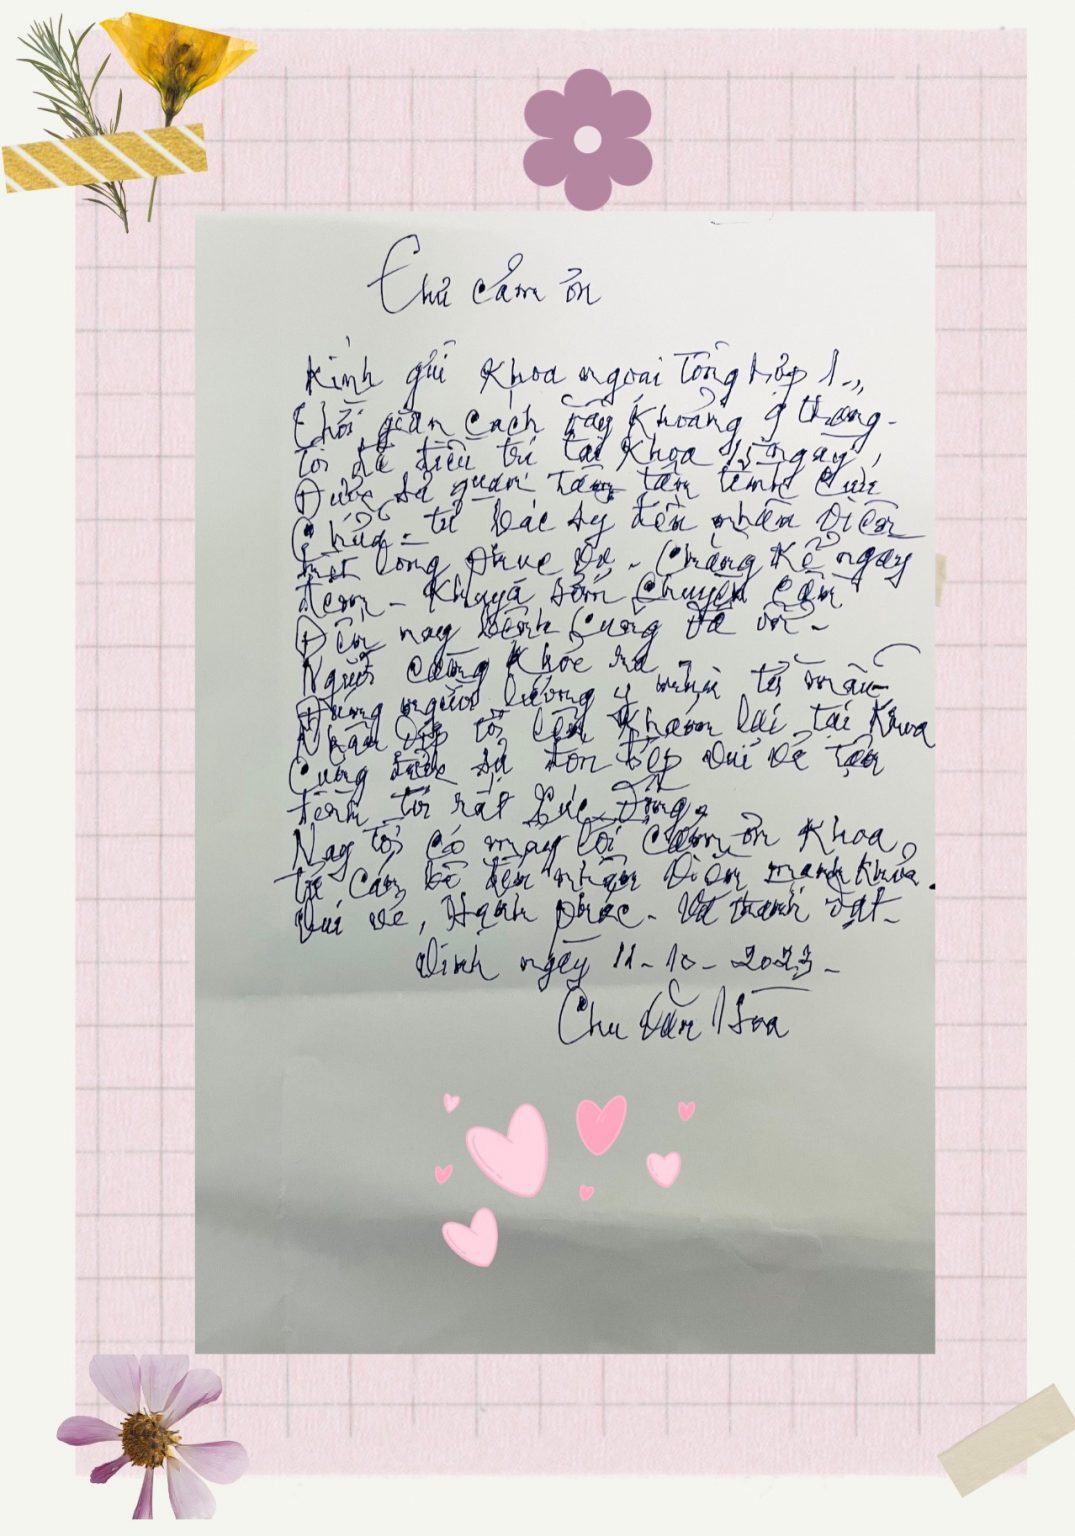 Thư cảm ơn
Kính gửi Khoa ngoại Tổng hợp 1.,
Thời gian cách đây khoảng 9 tháng.
Tôi đã điều trị tại Khoa 15 ngày,
Được sự quan tâm tận tình cứu
Chữa. từ bác sỹ đến nhân viên
một lòng phục vụ. Chẳng kể ngày
đêm. Khuya sớm Chuyên Cần
Đến nay bệnh cũng đã ổn.
Người cũng khỏe ra
Đúng người lương y như từ mẫu
Nhân dịp tôi lên khám lại tại Khoa
Cũng được sự đón tiếp vui vẻ tận
tình tôi rất xúc động.
Nay tôi có mấy lời cảm ơn Khoa,
từ cán bộ đến nhân viên mạnh khỏe.
Vui vẻ, Hạnh phúc. Và thành đạt.
Vinh ngày 11-10-2023.
Chu Văn Hòa